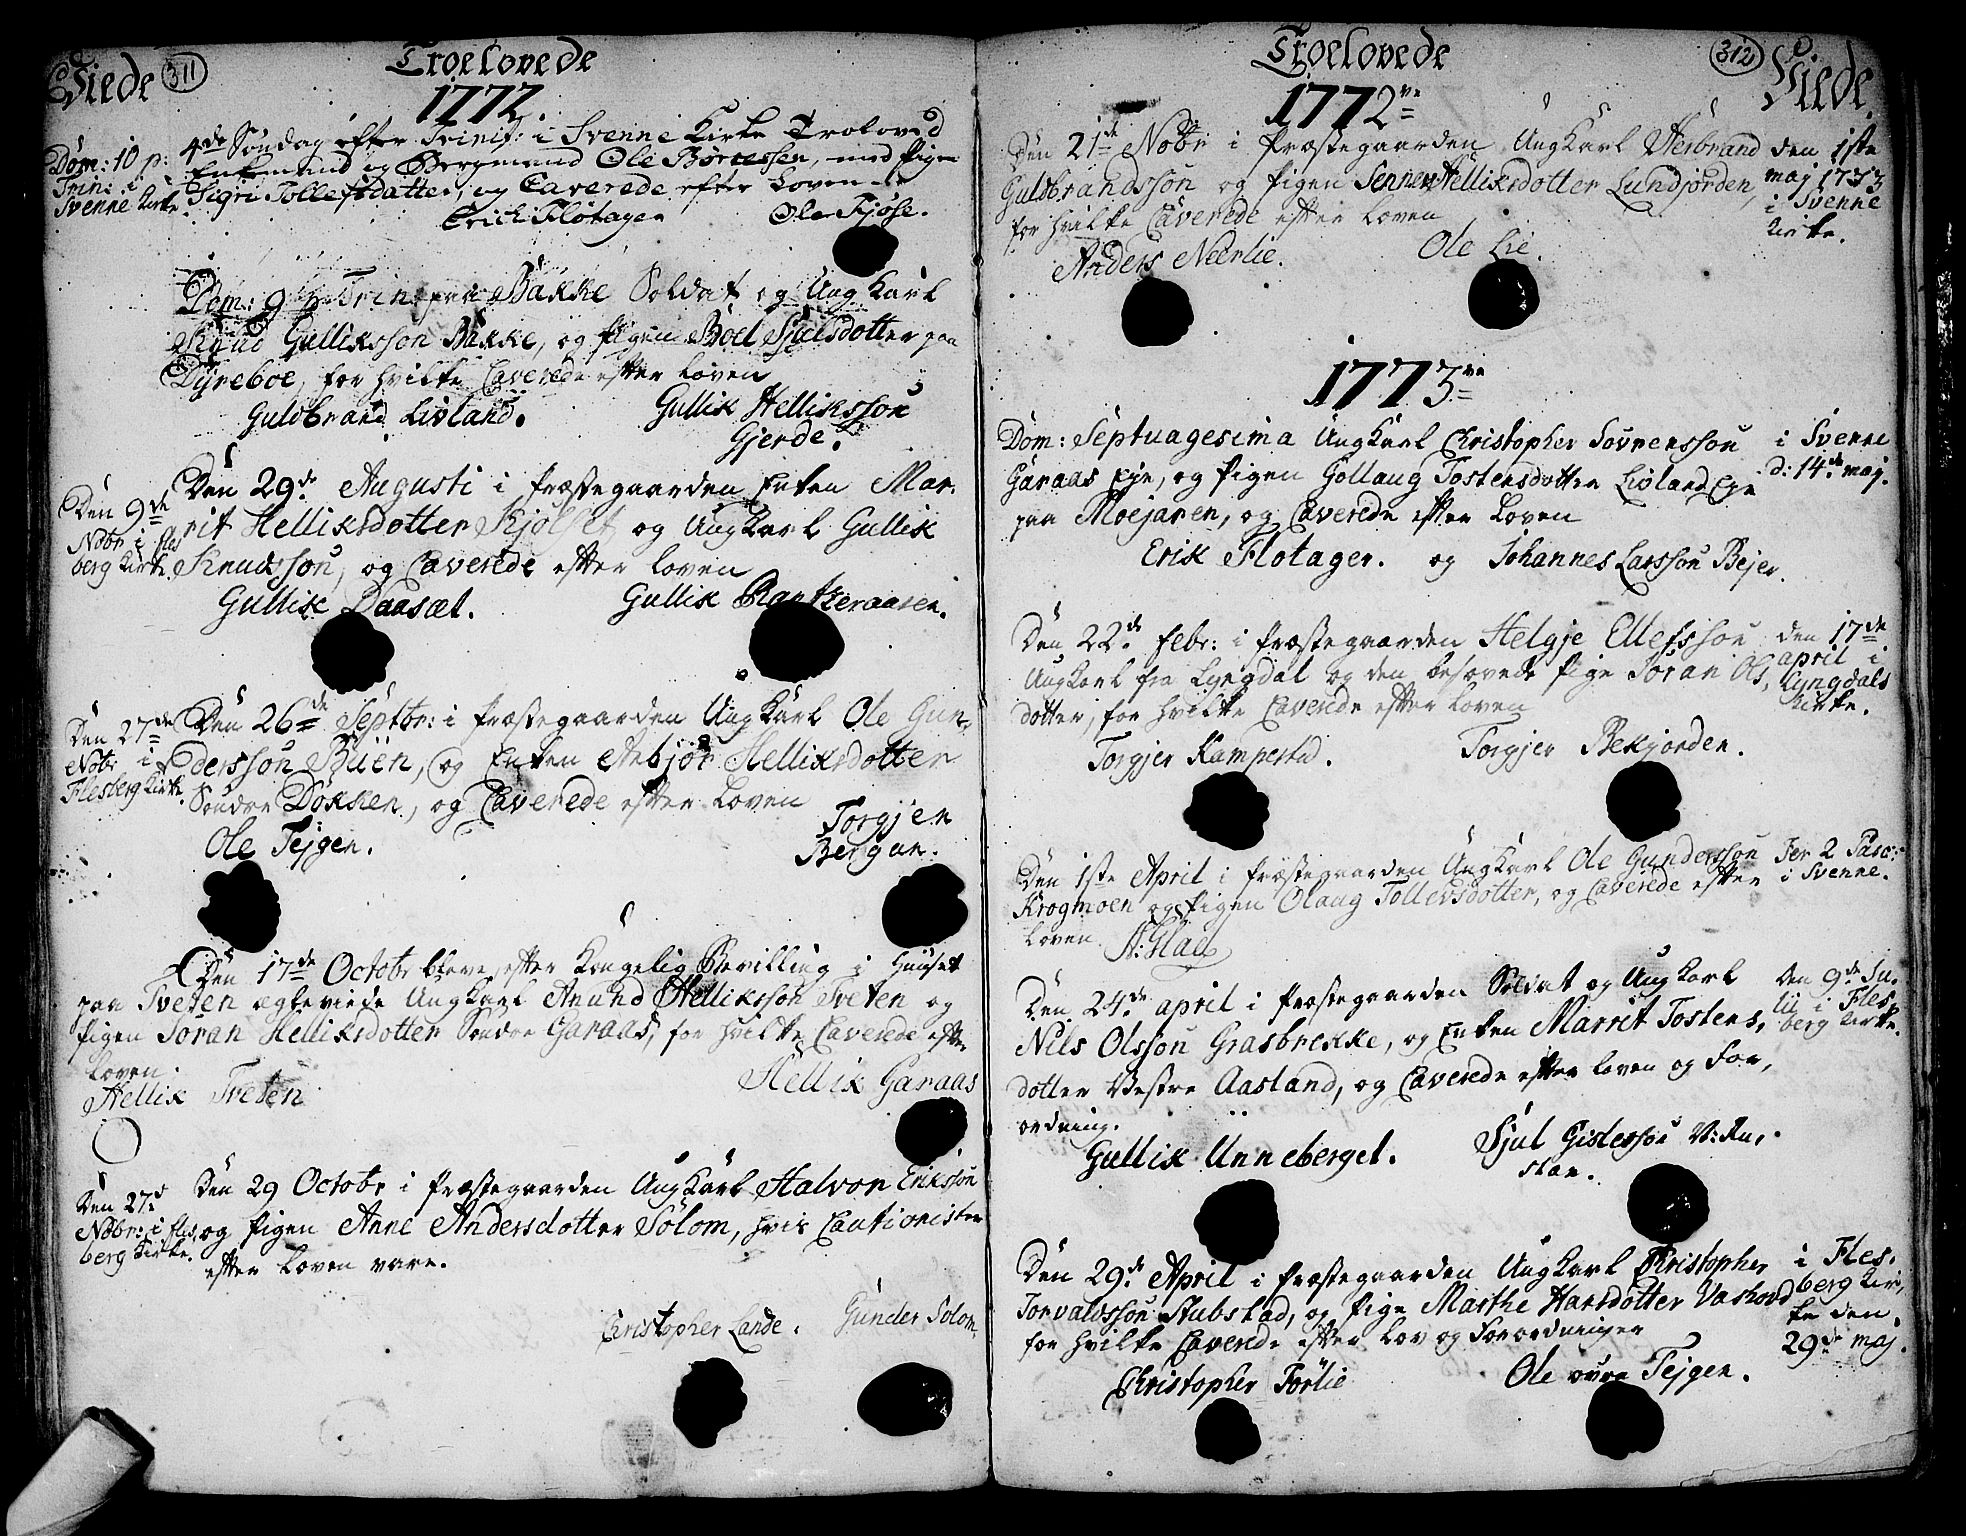 Viede
311
Troelovede
1772.
Dom: 10 p:
Trin: i
Svenne Kirke.
4de Søndag efter Trinit: i Svenne Kirke Troloved
Enkemand og Bergmand Ole Børtessen, med Pigen
Sigri Tollefsdatter, og Caverede efter Loven
Erich Flotager
Ole Fjøse.
Dom: 9 p Trin: paa Bakke Soldat og Ung Karl
Knud Gulliksson Bakke, og Pigen Boel Sjulsdotter paa
Dyreboe, for hvilke Caverede efter Loven
Guldbrand Livland.
Gullik Helliksson
Gjerde.
Den 9de
Nobr i Fles
berg Kirke.
Den 29de Augusti i Præstegaarden Enken Mar-
rit Helliksdotter Kjølset og Ung Karl Gullik
Knudsson, og Caverede efter Loven
Gullik Daasæt.
Gullik Ranteraasen.
Den 27de
Nobr i
Flesberg Kirke
Den 26de Septbr: i Præstegaarden Ung Karl Ole Gun-
dersson Büen, og Enken Anbjør Helliksdotter
Søndre Dokken, og Caverede efter Loven
Ole Tejgen.
Torgjen
Bergan.
Den 17de Octobr bleve efter Kongelig Bevilling i Huuset
paa Tveten ægteviede Ung Karl Anund Helliksson Tveten og
Pigen Joran Helliksdotter Søndre Garaas, for hvilke Caverede efter
Loven.
Hellik Tveten
Hellik Garaas
Den 27d
Nobr: i Fles,
berg Kirke.
Den 29 Octobr i Præstegaarden Ung Karl Halvor Eriksson
og Pigen Anne Andersdotter Solom, hvis Cautionister
efter Loven vare.
Christopher Lande.
Gunder Solom.
Troelovede
312
Viede.
1772ve
Den 21de Nobr i Præstegaarden Ung Karl Herbrand
Guldbrandsson og Pigen Sennev Helliksdotter Lundjorden,
for hvilke Caverede efter Loven
Anders Neerlie.
Ole Lie.
den 1ste
maj 1733
i Svenne
Kirke.
1773ve
Dom: Septuagesima Ung Karl Christopher Sovrensson
Garaas Eje, og Pigen Gollaug Tostensdotter Livland Eje
paa Moejaren, og Caverede efter Loven
Erik Flotager. og Johannes Larsson Bejer.
i Svenne
d: 14de maj.
Den 22de Febr: i Præstegaarden Helgje Ellefsson
Ung Karl fra Lyngdal og den besovede Pige Joran Ols,
dotter, for hvilke Caverede efter Loven
Torgjer Kampestad.
Torgjer Bekjorden.
den 17de
april i
Lyngdals
Kirke.
Den 1ste April i Præstegaarden Ung Karl Ole Gundersson
Krogmoen og Pigen Olaug Tollevsdotter, og Caverede efter
Loven. N: Flad
Fer 2 Pasc:
i Svenne.
Den 24de april i Præstegaarden Soldat og Ung Karl
Nils Olsson Grasbrekke, og Enken Marrit Tostens,
dotter Vestre Aasland, og Caverede efter Loven og For,
ordning.
Gullik Unneberget.
Sjul Gislesson V: Ru,
stan.
Den 9de Ju,
lii i Fles,
berg Kirke.
Den 29de April i Præstegaarden Ung Karl Christopher
Torvaldsson Stubstad, og Pige Marthe Hansdotter Vashovd
for hvilke Caverede efter Lov og Forordninger
Christopher Førlie
Ole øvre Tejgen.
i Fles,
berg Kir,
ke den
29de maj.